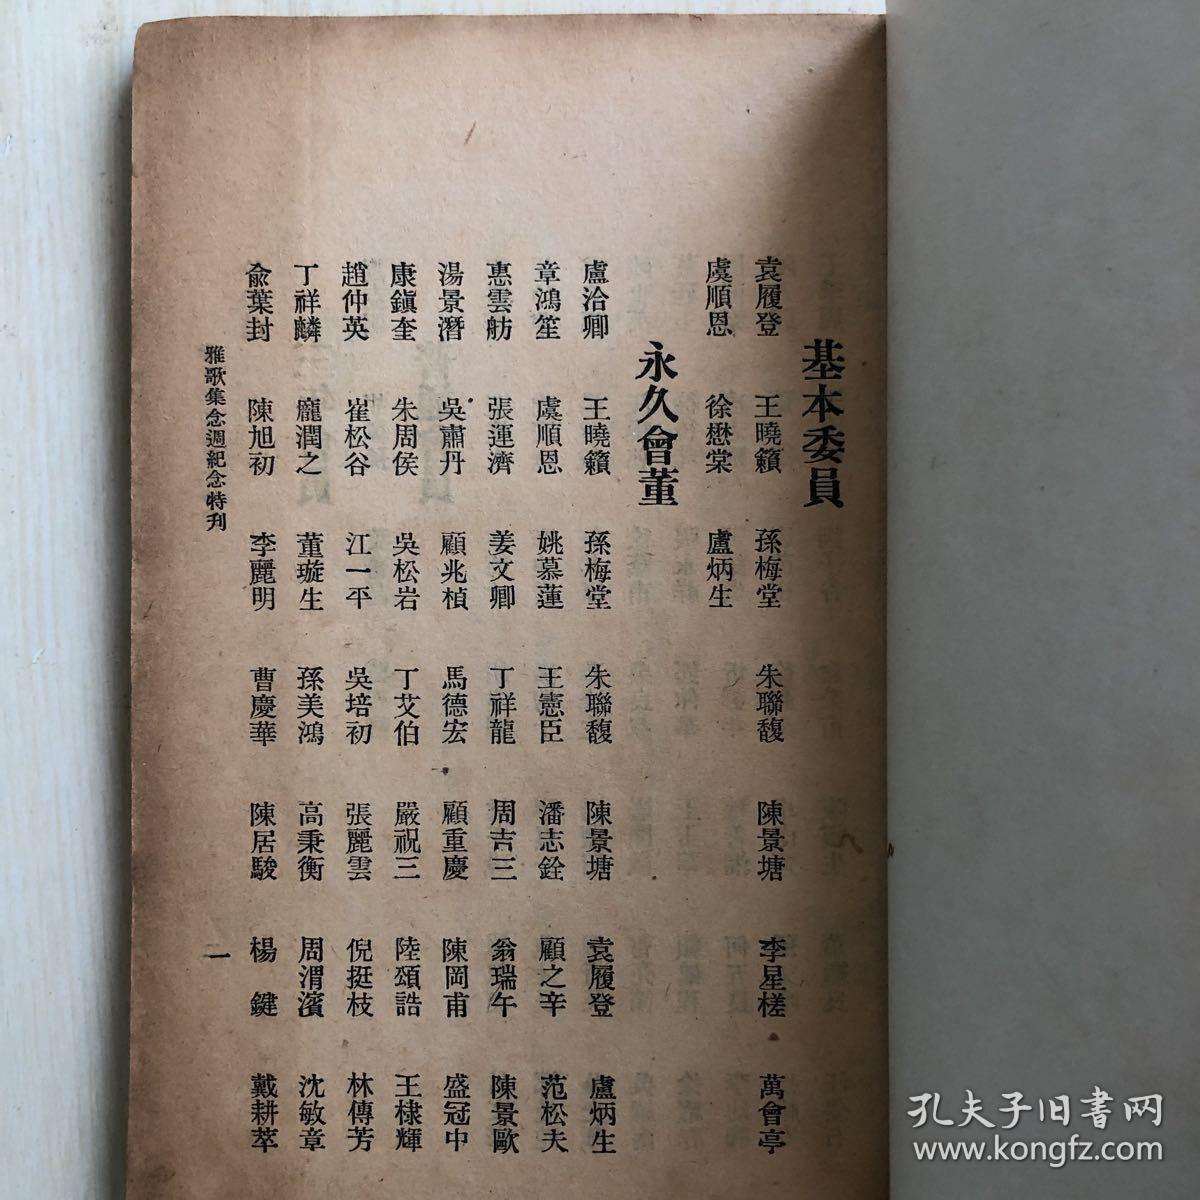 基本委員
袁履登 王曉籟 孫梅堂 朱聯馥 陳景塘 李星槎 萬會亭
虞順恩 徐懋棠 盧炳生
永久會董
盧洽卿 王曉籟 孫梅堂 朱聯馥 陳景塘 袁履登 盧炳生
章鴻笙 虞順恩 姚慕蓮 王憲臣 潘志銓 顧之辛 范松夫
惠雲舫 張運濟 姜文卿 丁祥龍 周吉三 翁瑞午 陳景歐
湯景潛 吳肅丹 顧兆楨 馬德宏 顧重慶 陳岡甫 盛冠中
康鎮奎 朱周侯 吳松岩 丁艾伯 嚴祝三 陸頌誥 王棣輝
趙仲英 崔松谷 江一平 吳培初 張麗雲 倪挺枝 林傳芳
丁祥麟 龐潤之 董璇生 孫美鴻 高秉衡 周渭濱 沈敏章
兪葉封 陳旭初 李麗明 曹慶華 陳居駿 楊鍵 戴耕莘
雅歌集念週紀念特刋
二
孔夫子旧書网
www.kongfz.com